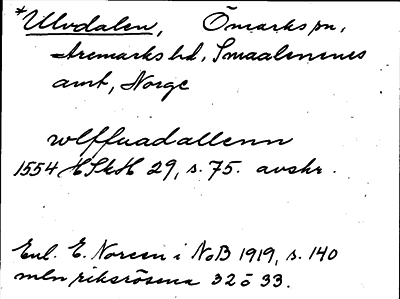 *Ulvdalen, Ömarks sn,
Aremarks hd, Smaalenenes
amt, Norge
wlffuadallenn
1554 HSkH 29, s. 75. avskr.
Enl. E. Noreen i NoB 1919, s. 140
mln riksrösena 32 o 33.